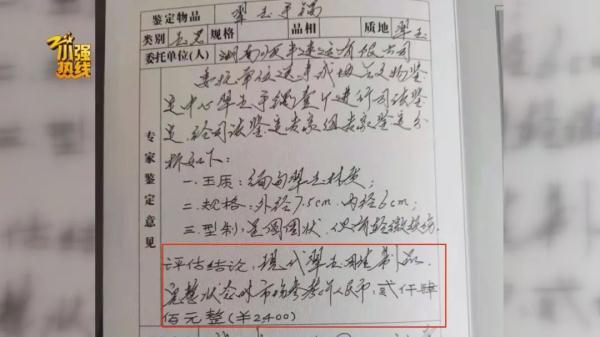 小强热线
鉴定物品 翠玉手镯
类别 玉器 规格 品相 质地 翠玉
委托单位(人) 湖南 有限公司
委托单位送来 文物鉴
定中心翠玉手镯壹个进行司法鉴
定,经司法鉴定专家组专家鉴定分
析如下:
专家鉴定意见
一.玉质:缅甸翠玉材质;
二.规格:外径7.5cm.内径6cm;
三.型制:呈圆圈状.但有轻微损伤.
评估结论:现代翠玉 制品.
完整状态的市场参考价人民币:贰仟肆
佰元整(¥2,400)